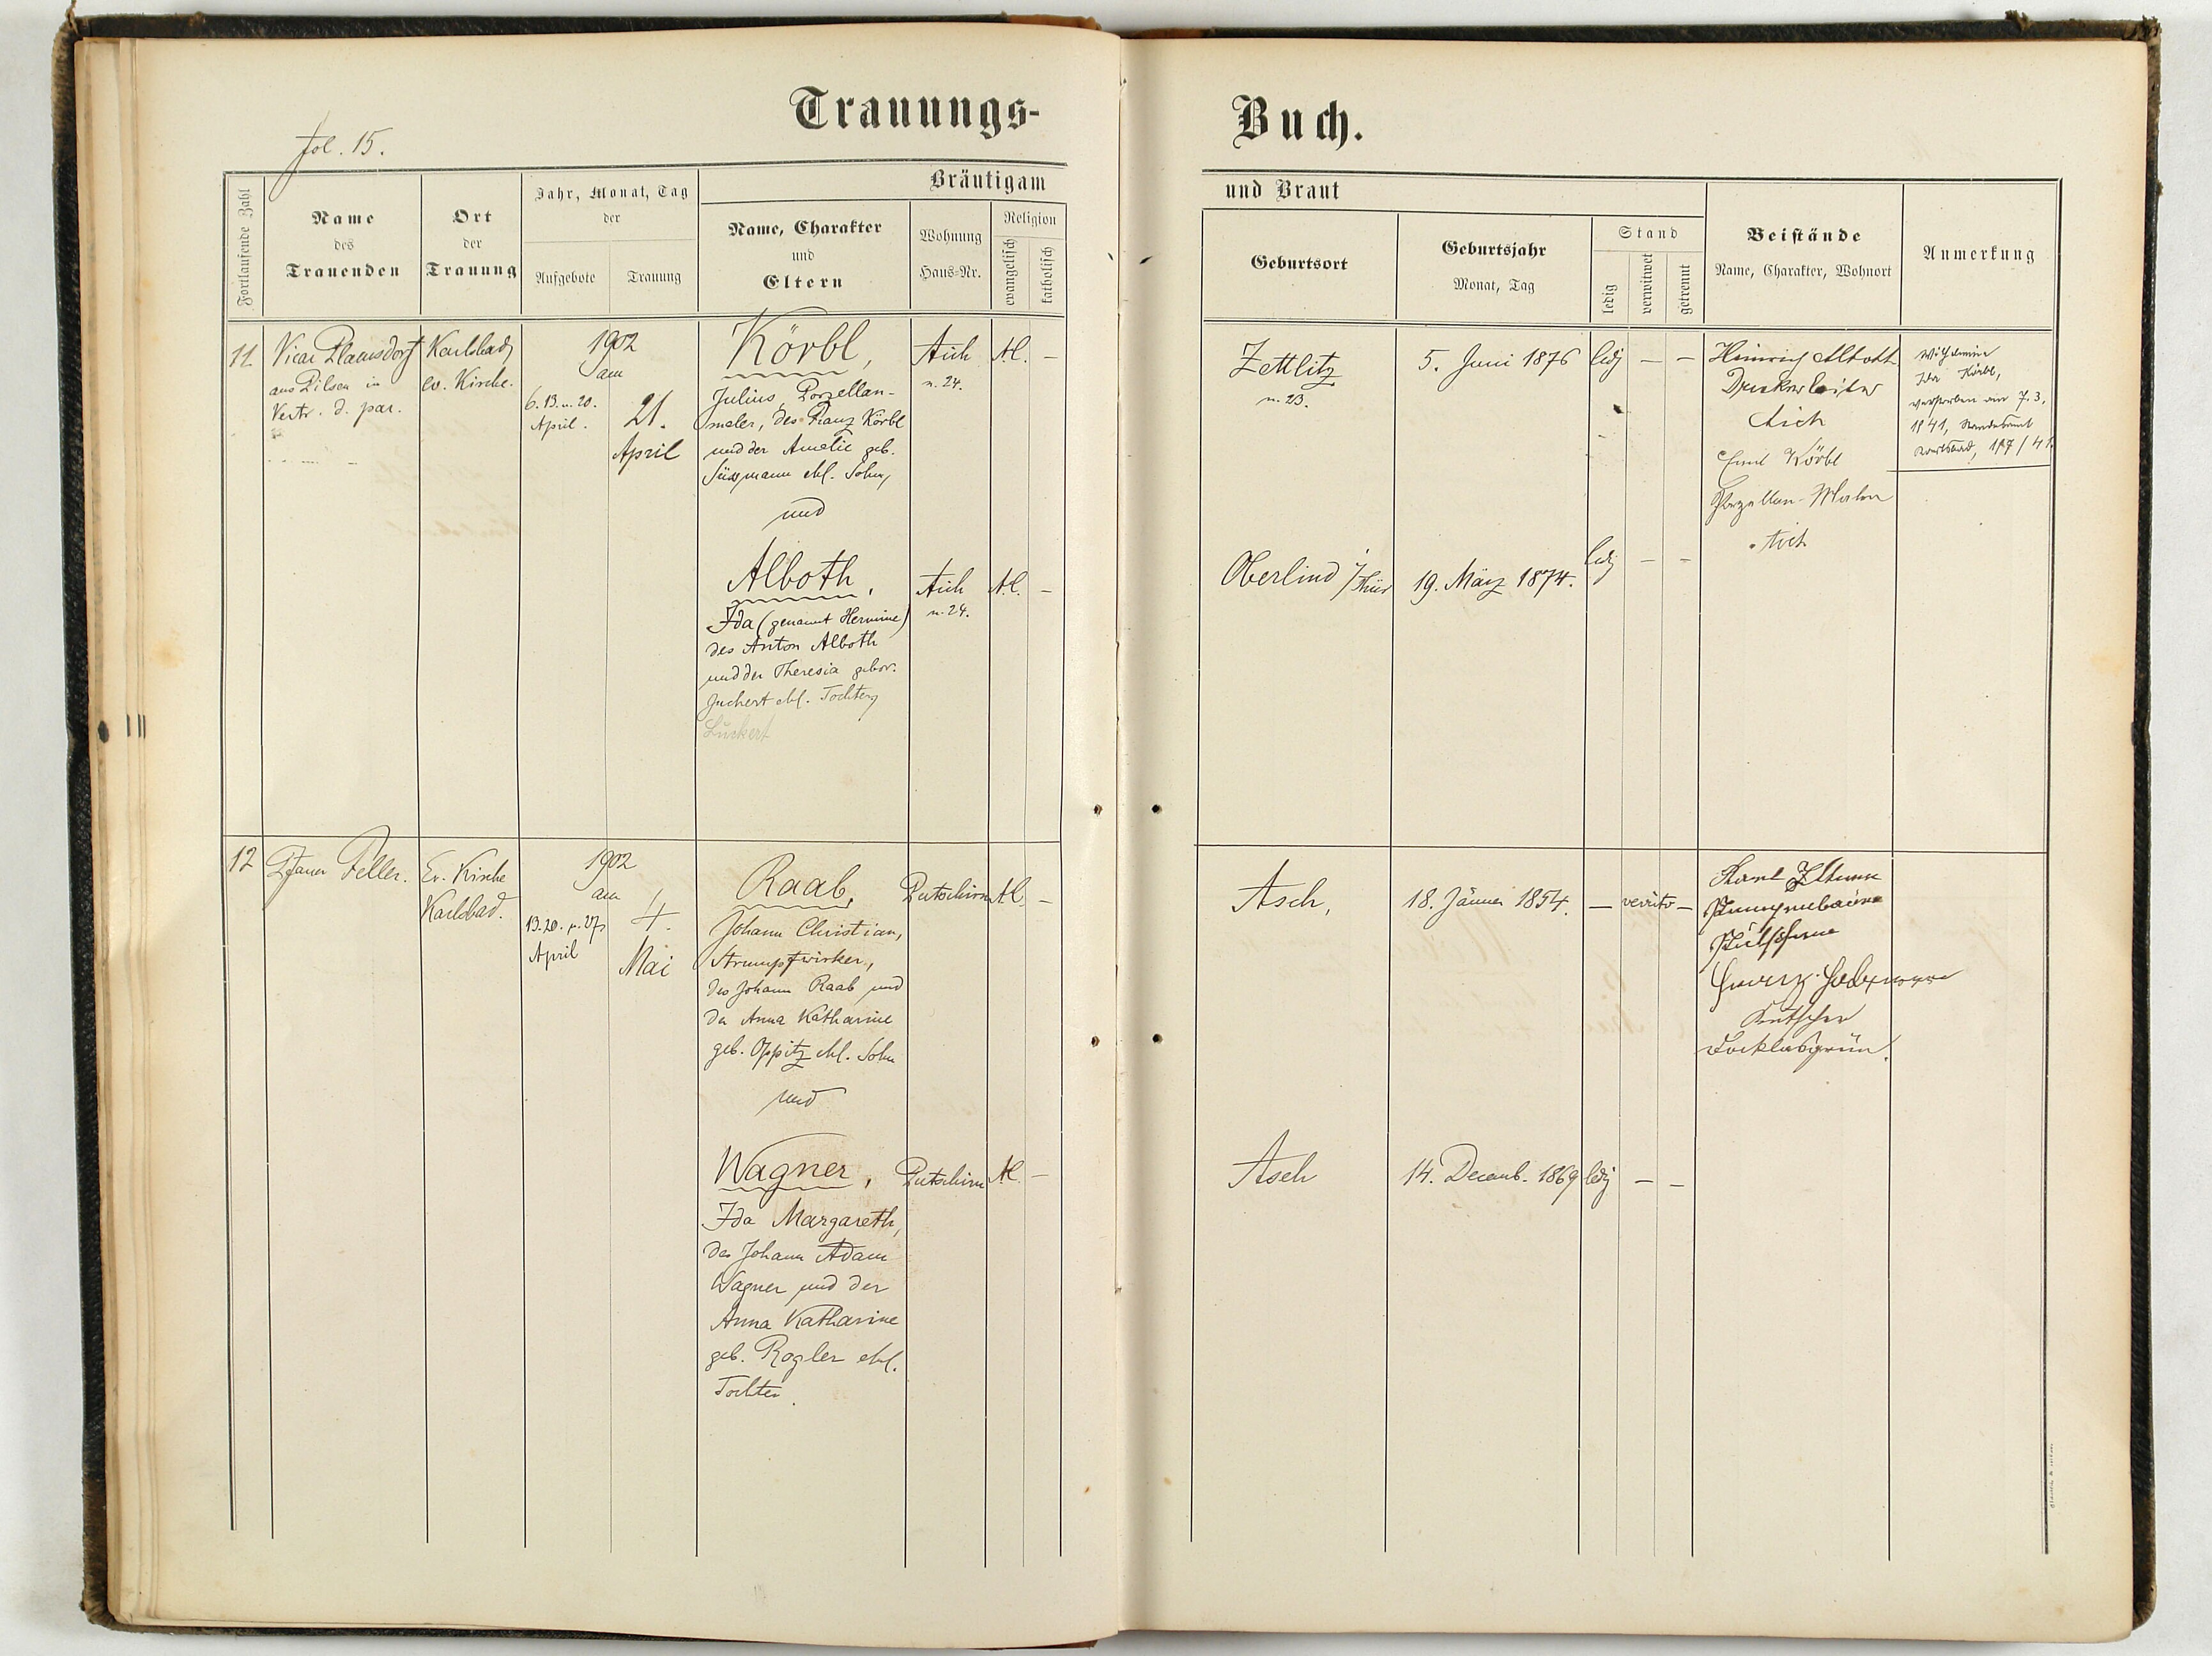 Trauungs-
Buch.
fol. 15.
Fortlaufende Zahl
Name
des
Trauenden
Ort
der
Trauung
Jahr, Monat, Tag
der
Aufgebote
Trauung
Bräutigam
Name, Charakter
und
Eltern
Wohnung
Haus-Nr.
Religion
evangelisch
katholisch
und Braut
Geburtsort
Geburtsjahr
Monat, Tag
Stand
ledig
verwitwet
getrennt
Beistände
Name, Charakter, Wohnort
Anmerkung
11
Vicar
aus Pilsen in
Vertr. d. par.
Karlsbad
ev. Kirche.
1902
am
6. 13. u. 20.
April.
21.
April
Körbl,
Julius, Porzellan-
maler, des Franz Körbl
und der Amelie geb.
Süssmann ehl. Sohn,
und
Aich
n. 24.
A.C. –
Zettlitz
n. 23.
5. Juni 1876
ledig – –
Heinrich Alboth
Aich
Emil Körbl
Porzellan-Maler
Aich
Ida Körbl,
verstorben am 7. 3.
1941, Standesamt
Karlsbad, 177/41.
Alboth,
Ida (genannt Hermine)
des Anton Alboth
und der Theresia gebor.
Juchert ehl. Tochter
Luckert
Aich
n. 24.
A.C. –
Oberlind i/Thür
19. März 1874.
ledig – –
12
Pfarrer Feller.
Ev. Kirche
Karlsbad.
1902
am
13. 20. u. 27
April
4.
Mai
Raab,
Johann Christian,
Strumpfwirker,
des Johann Raab und
der Anna Katharine
geb. Oppitz ehl. Sohn
und
Putschirn
A.C. –
Asch,
18. Jänner 1854.
– verwitw –
Kutscher
Wagner,
Ida Margareth,
des Johann Adam
Wagner und der
Anna Katharine
geb. Rogler ehl.
Tochter.
Putschirn
A.C. –
Asch
14. Decemb. 1869
ledig – –